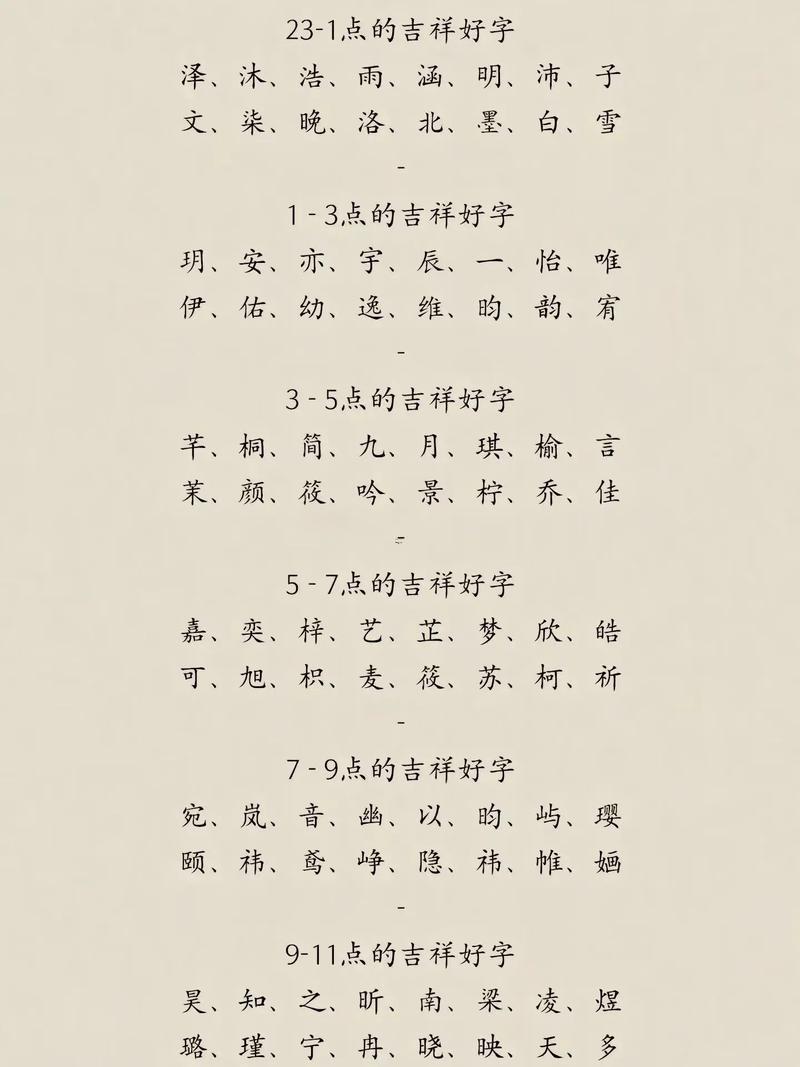 23-1点的吉祥好字
泽、沐、浩、雨、涵、明、沛、子
文、柒、晚、洛、北、墨、白、雪
-
1-3点的吉祥好字
玥、安、亦、宇、辰、一、怡、唯
伊、佑、幼、逸、维、昀、韵、宥
-
3-5点的吉祥好字
芊、桐、简、九、月、琪、榆、言
茉、颜、筱、吟、景、柠、乔、佳
-
5-7点的吉祥好字
嘉、奕、梓、艺、芷、梦、欣、皓
可、旭、枳、麦、筱、苏、柯、祈
-
7-9点的吉祥好字
宛、岚、音、幽、以、昀、屿、璎
颐、祎、鸢、峥、隐、祎、帷、婳
-
9-11点的吉祥好字
昊、知、之、昕、南、梁、凌、煜
璐、瑾、宁、冉、晓、映、天、多